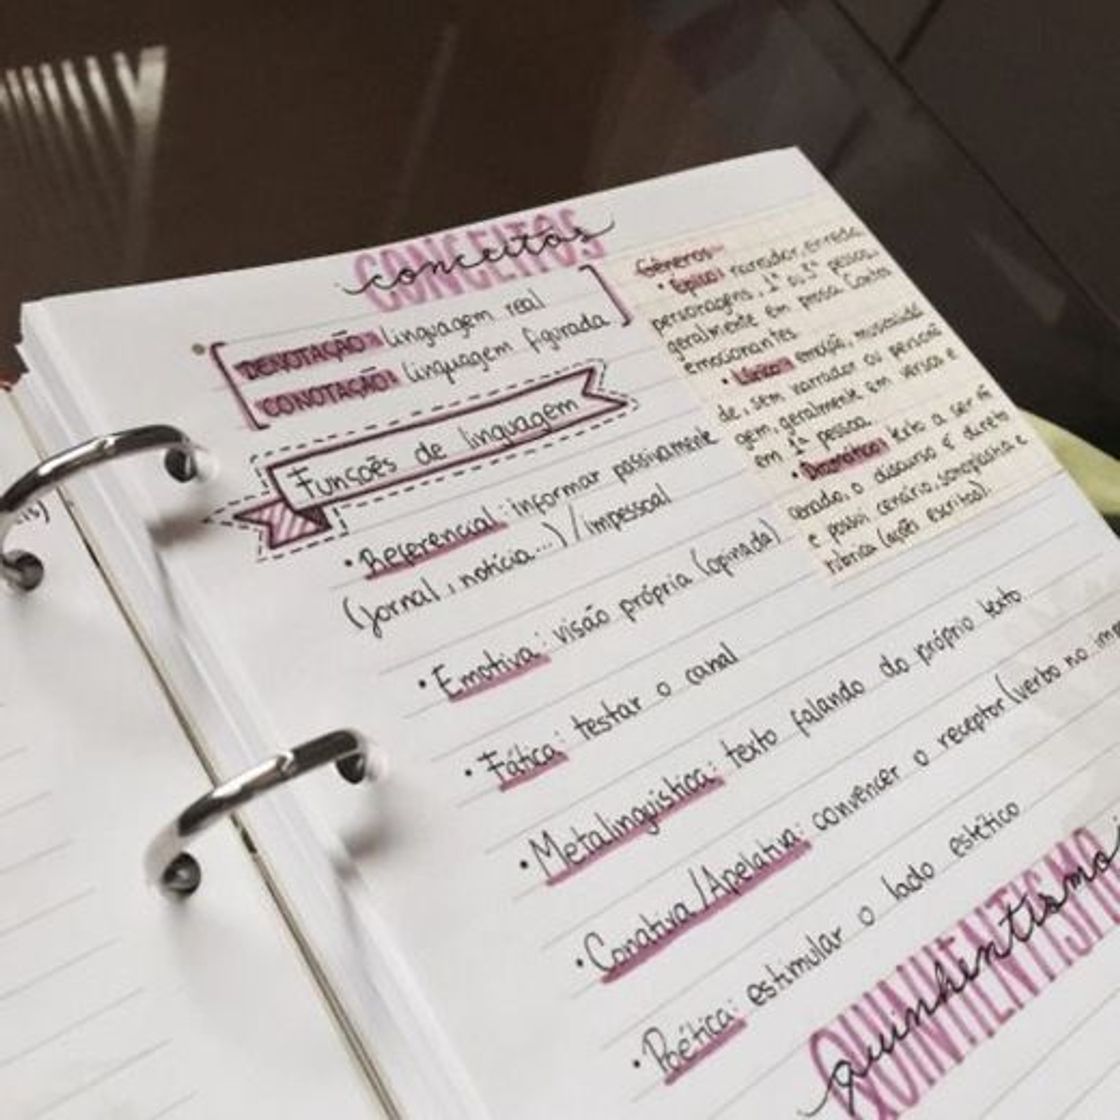 CONCEITOS
conceitos
DENOTAÇÃO: linguagem real
CONOTAÇÃO: linguagem figurada
Funsoẽs de linguagem
• Referencial: informar passivamente
(Jornal, notícia...) / impessoal
• Emotiva: visão própria (opinada)
• Fática: testar o canal
• Metalinguística: texto falando do próprio texto
• Conativa/Apelativa: convencer o receptor (verbo no imp
• Poética: estimular o lado estético
Gêneros
• Épico: narrador, enredo
personagens, 1ª ou 3ª pessoa
geralmente em prosa. Contos
emocionantes
• Lírico: emoção, musicalida
de, sem narrador ou persona
gem, geralmente em versos e
em 1ª pessoa.
• Dramático: texto a ser en
cenado, o discurso é direto
e possui cenário, sonoplastia e
rubrica (ações escritas).
QUINHENTISMO
quinhentismo